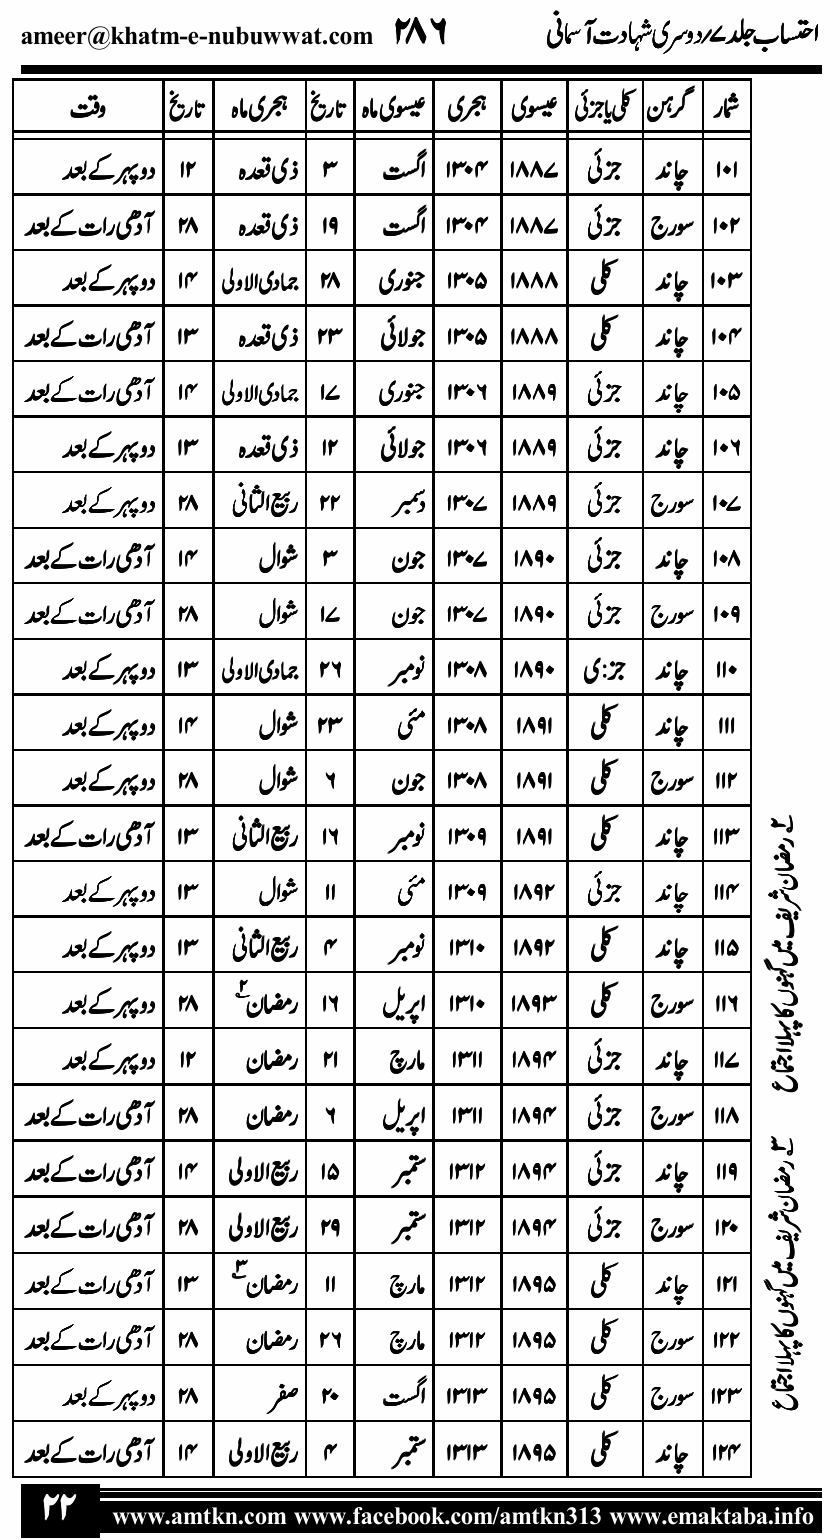 احتساب جلد ۷؍ دوسری شہادت آسمانی ۲۸۶ ameer@khatm-e-nubuwwat.com
شمار گرہن کلی یا جزئی عیسوی ہجری عیسوی ماہ تاریخ ہجری ماہ تاریخ وقت
۱۰۱ چاند جزئی ۱۸۸۷ ۱۳۰۴ اگست ۳ ذی قعدہ ۱۲ دوپہر کے بعد
۱۰۲ سورج جزئی ۱۸۸۷ ۱۳۰۴ اگست ۱۹ ذی قعدہ ۲۸ آدھی رات کے بعد
۱۰۳ چاند کلی ۱۸۸۸ ۱۳۰۵ جنوری ۲۸ جمادی الاولی ۱۴ دوپہر کے بعد
۱۰۴ چاند کلی ۱۸۸۸ ۱۳۰۵ جولائی ۲۳ ذی قعدہ ۱۳ آدھی رات کے بعد
۱۰۵ چاند جزئی ۱۸۸۹ ۱۳۰۶ جنوری ۱۷ جمادی الاولی ۱۴ آدھی رات کے بعد
۱۰۶ چاند جزئی ۱۸۸۹ ۱۳۰۶ جولائی ۱۲ ذی قعدہ ۱۳ دوپہر کے بعد
۱۰۷ سورج جزئی ۱۸۸۹ ۱۳۰۷ دسمبر ۲۲ ربیع الثانی ۲۸ دوپہر کے بعد
۱۰۸ چاند جزئی ۱۸۹۰ ۱۳۰۷ جون ۳ شوال ۱۴ آدھی رات کے بعد
۱۰۹ سورج جزئی ۱۸۹۰ ۱۳۰۷ جون ۱۷ شوال ۲۸ آدھی رات کے بعد
۱۱۰ چاند جز:ی ۱۸۹۰ ۱۳۰۸ نومبر ۲۶ جمادی الاولی ۱۳ دوپہر کے بعد
۱۱۱ چاند کلی ۱۸۹۱ ۱۳۰۸ مئی ۲۳ شوال ۱۴ دوپہر کے بعد
۱۱۲ سورج کلی ۱۸۹۱ ۱۳۰۸ جون ۶ شوال ۲۸ دوپہر کے بعد
۱۱۳ چاند کلی ۱۸۹۱ ۱۳۰۹ نومبر ۱۶ ربیع الثانی ۱۳ آدھی رات کے بعد
۱۱۴ چاند جزئی ۱۸۹۲ ۱۳۰۹ مئی ۱۱ شوال ۱۳ دوپہر کے بعد
۱۱۵ چاند کلی ۱۸۹۲ ۱۳۱۰ نومبر ۴ ربیع الثانی ۱۳ دوپہر کے بعد
۱۱۶ سورج کلی ۱۸۹۳ ۱۳۱۰ اپریل ۱۶ رمضان۲ ۲۸ دوپہر کے بعد
۱۱۷ چاند جزئی ۱۸۹۴ ۱۳۱۱ مارچ ۲۱ رمضان ۱۲ دوپہر کے بعد
۱۱۸ سورج جزئی ۱۸۹۴ ۱۳۱۱ اپریل ۶ رمضان ۲۸ آدھی رات کے بعد
۱۱۹ چاند جزئی ۱۸۹۴ ۱۳۱۲ ستمبر ۱۵ ربیع الاولی ۱۴ آدھی رات کے بعد
۱۲۰ سورج جزئی ۱۸۹۴ ۱۳۱۲ ستمبر ۲۹ ربیع الاولی ۲۸ آدھی رات کے بعد
۱۲۱ چاند کلی ۱۸۹۵ ۱۳۱۲ مارچ ۱۱ رمضان۳ ۱۳ آدھی رات کے بعد
۱۲۲ سورج کلی ۱۸۹۵ ۱۳۱۲ مارچ ۲۶ رمضان ۲۸ آدھی رات کے بعد
۱۲۳ سورج کلی ۱۸۹۵ ۱۳۱۳ اگست ۲۰ صفر ۲۸ دوپہر کے بعد
۱۲۴ چاند کلی ۱۸۹۵ ۱۳۱۳ ستمبر ۴ ربیع الاولی ۱۴ آدھی رات کے بعد
۲ رمضان شریف میں گہنوں کا پہلا اجتماع
۳ رمضان شریف میں گہنوں کا پہلا اجتماع
۲۲ www.amtkn.com www.facebook.com/amtkn313 www.emaktaba.info